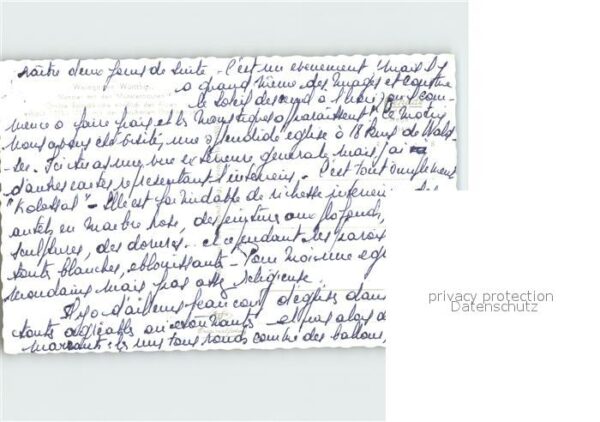 naître deux jours de suite - C'est un évènement! Mais Il y
a quand même des nuages et comme
le soleil descend à l'horizon com-
mence à faire frais et les moustiques apparaissent. Ce matin
nous avons été visité une splendide eglise à 18 kms de Wald-
see. Ici tu as une vue extérieure générale mais j'ai
d'autres cartes représentant l'intérieur. - C'est tout simplement
"Kolossal" - Elle est formidable de richesse intérieure
autels en marbre rose, des peintures aux plafonds,
sculptures, des dorures - et cependant les parois
toutes blanches, éblouissantes - Pour moi une egl
mondaine mais pas assez religieuse.
Il y a d'ailleurs beaucoup d'églises dans
toutes agréables
marrants - ils sont tous ronds comme des ballons,
privacy protection
Datenschutz